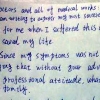 oems and all of medical works
on writing to express my not success
for me when I suffered this h
saved my life
Since my symptoms was not
ying that without your adv
professional attitude, what
family.